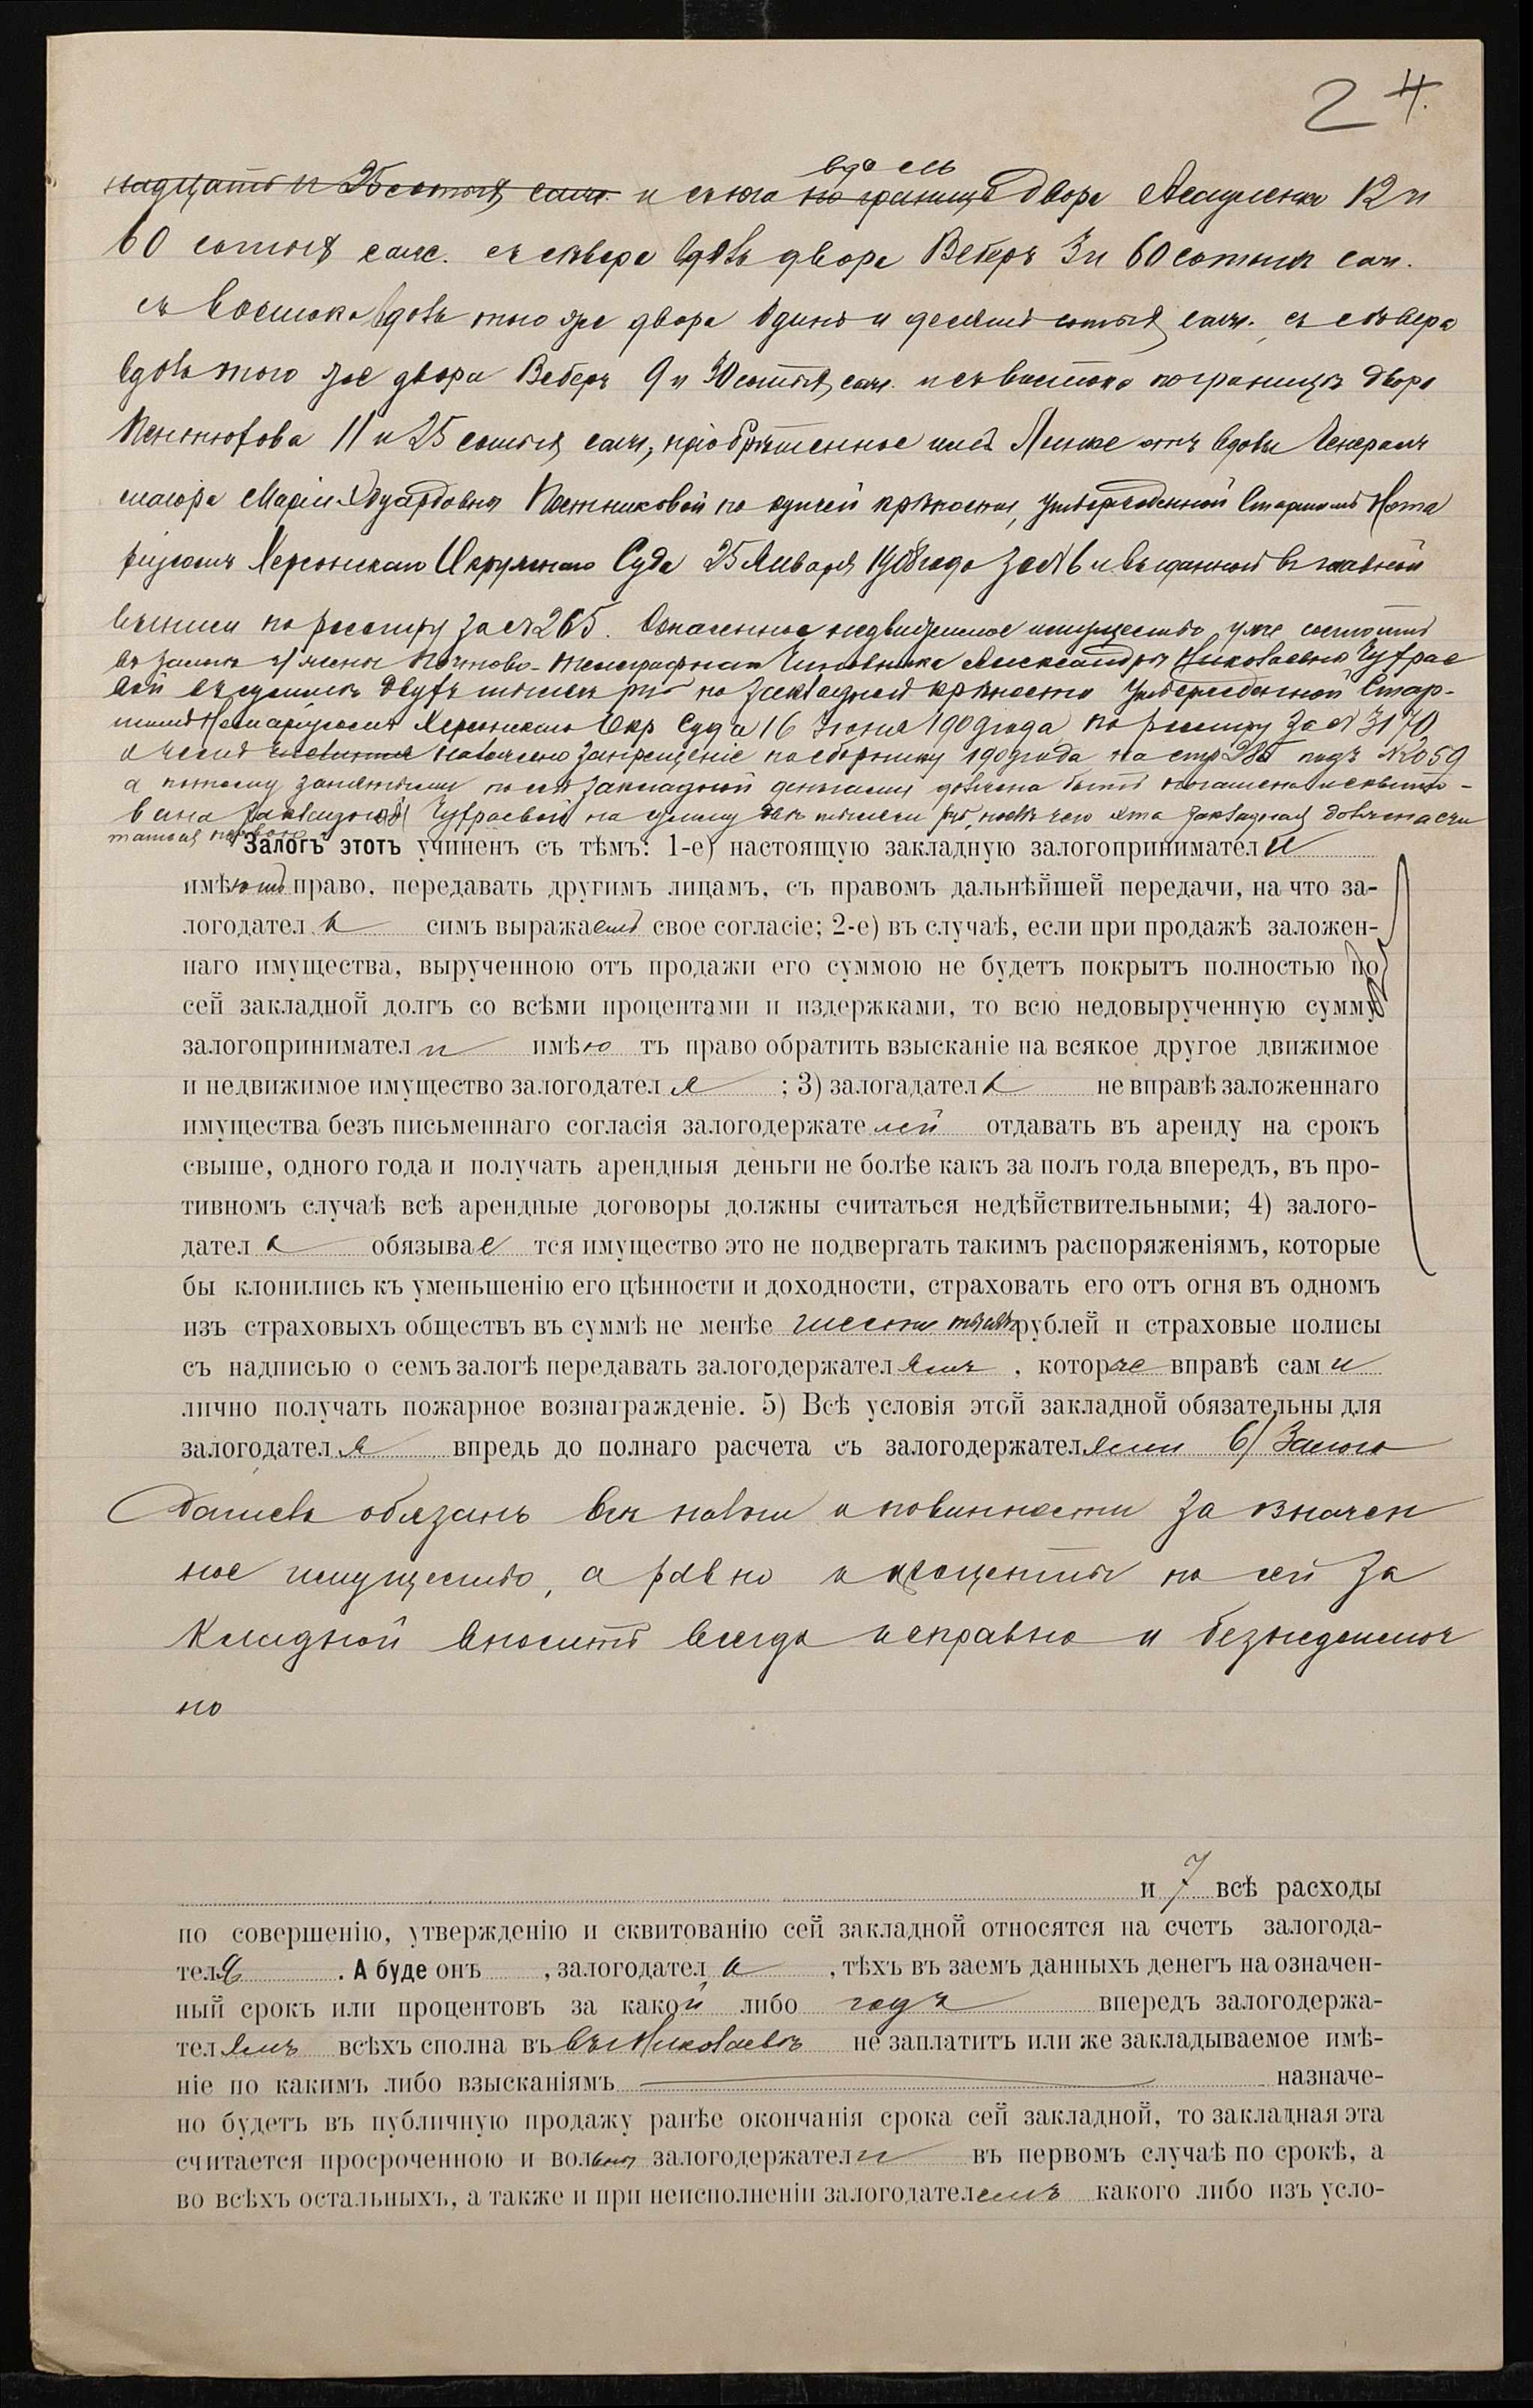 24.
вдоль
надцать и 25 сотыхъ саж. и съ юга по границѣ двора 12 и
60 сотыхъ саж. съ сѣвера вдоль двора Веберъ 3 и 60 сотыхъ саж.
съ востока вдоль того же двора одинъ и десять сотыхъ саж., съ сѣвера
вдоль того же двора Веберъ 9 и 30 сотыхъ саж. и съ востока по границѣ двора
11 и 25 сотыхъ саж., пріобрѣтенное имъ Линке отъ вдовы Генералъ
маіора Маріи Эдуардовны Постниковой по купчей крѣпости, утвержденной Старшимъ Нота
ріусомъ Херсонскаго Окружнаго Суда 25 Января 1908 года за № 6 и выданной въ главной
выписи по реестру за № 265. Означенное недвижимое имущество уже состоитъ
въ залогѣ у жены Почтово-телеграфнаго Чиновника Александры Николаевны Чухрае
вой въ суммѣ двухъ тысячъ руб. по закладной крѣпости утвержденной Стар-
шимъ Нотаріусомъ Херсонскаго Окр Суда 16 Іюня 1909 года по реестру за № 3170
о чемъ наложено запрещеніе по сборнику 1909 года на стр 285 подъ № 2059
а потому занятыми по сей закладной деньгами должна быть погашена и сквито-
вана закладная Чухраевой на сумму двѣ тысячи руб, послѣ чего эта закладная должна счи
таться первою
Залогъ этотъ учиненъ съ тѣмъ: 1-е) настоящую закладную залогоприниматели
имѣютъ право, передавать другимъ лицамъ, съ правомъ дальнѣйшей передачи, на что за-
логодатель симъ выражаетъ свое согласіе; 2-е) въ случаѣ, если при продажѣ заложен-
наго имущества, вырученною отъ продажи его суммою не будетъ покрытъ полностью по
сей закладной долгъ со всѣми процентами и издержками, то всю недовырученную сумму
залогоприниматели имѣютъ право обратить взысканіе на всякое другое движимое
и недвижимое имущество залогодателя ; 3) залагадатель не вправѣ заложеннаго
имущества безъ письменнаго согласія залогодержателей отдавать въ аренду на срокъ
свыше, одного года и получать арендныя деньги не болѣе какъ за полъ года впередъ, въ про-
тивномъ случаѣ всѣ арендные договоры должны считаться недѣйствительными; 4) залого-
датель обязывается имущество это не подвергать такимъ распоряженіямъ, которые
бы клонились къ уменьшенію его цѣнности и доходности, страховать его отъ огня въ одномъ
изъ страховыхъ обществъ въ суммѣ не менѣе шести тысячъ рублей и страховые полисы
съ надписью о семъ залогѣ передавать залогодержателямъ , которые вправѣ сами
лично получать пожарное вознагражденіе. 5) Всѣ условія этой закладной обязательны для
залогодателя впредь до полнаго расчета съ залогодержателями 6) Залого
датель обязанъ всѣ налоги и повинности за означен
ное имущество, а равно и проценты по сей за
кладной вносить всегда исправно и безнедоимоч
но
и 7 всѣ расходы
по совершенію, утвержденію и сквитованію сей закладной относятся на счетъ залогода-
теля . А буде онъ , залогодатель , тѣхъ въ заемъ данныхъ денегъ на означен-
ный срокъ или процентовъ за какой либо годъ впередъ залогодержа-
телямъ всѣхъ сполна въ въ г Николаевѣ не заплатитъ или же закладываемое имѣ-
ніе по какимъ либо взысканіямъ назначе-
но будетъ въ публичную продажу ранѣе окончанія срока сей закладной, то закладная эта
считается просроченною и вольны залогодержатели въ первомъ случаѣ по срокѣ, а
во всѣхъ остальныхъ, а также и при неисполненіи залогодателемъ какого либо изъ усло-